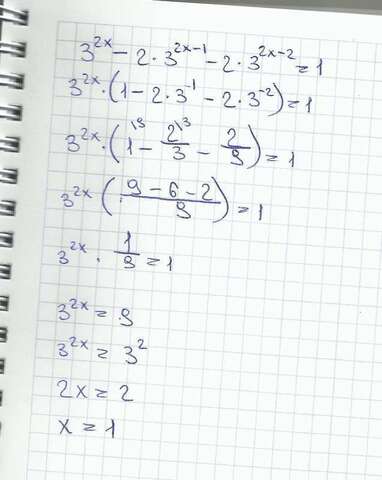 3^{2x} - 2 · 3^{2x-1} - 2 · 3^{2x-2} = 1
3^{2x} · (1 - 2 · 3^{-1} - 2 · 3^{-2}) = 1
3^{2x} · (1^{\9} - 2^{\3}/3 - 2/9) = 1
3^{2x} ((9 - 6 - 2)/9) = 1
3^{2x} · 1/9 = 1
3^{2x} = 9
3^{2x} = 3^2
2x = 2
x = 1